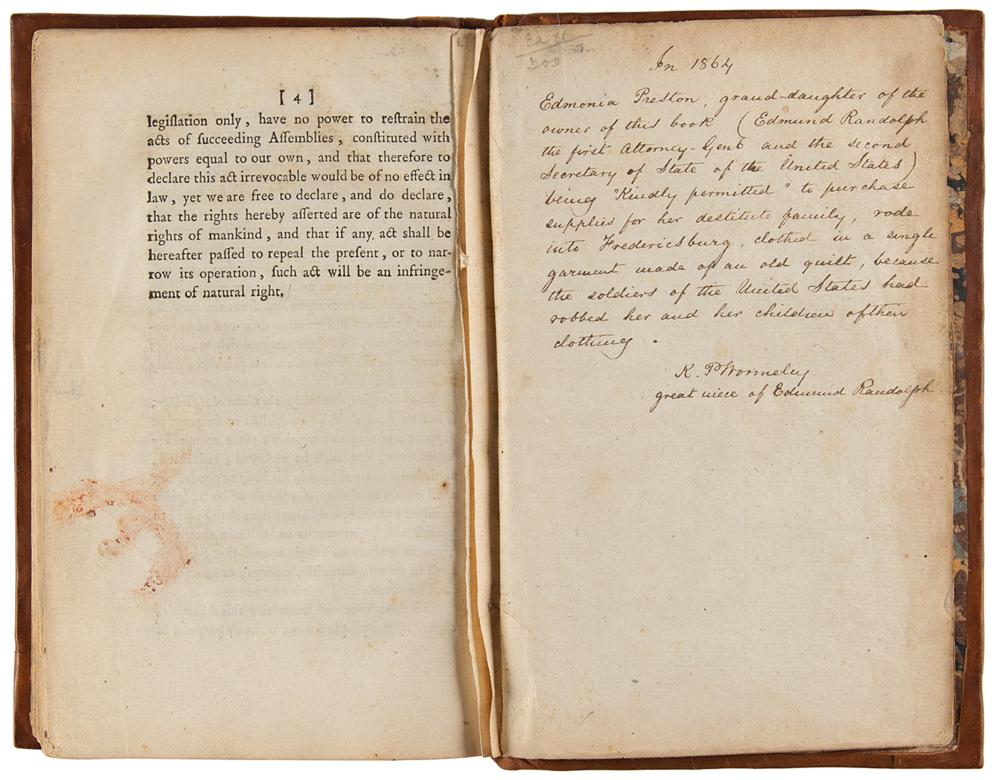 [ 4 ]
legiſlation only, have no power to reſtrain the
acts of ſucceeding Aſſemblies, conſtituted with
powers equal to our own, and that therefore to
declare this act irrevocable would be of no effect in
law, yet we are free to declare, and do declare,
that the rights hereby aſſerted are of the natural
rights of mankind, and that if any act ſhall be
hereafter paſſed to repeal the preſent, or to nar-
row its operation, ſuch act will be an infringe-
ment of natural right.
In 1864
Edmonia Preston, grand-daughter of the
owner of this book (Edmund Randolph
the first Attorney-Genl and the second
Secretary of State of the United States)
being "Kindly permitted" to purchase
supplies for her destitute family, rode
into Fredericsburg, clothed in a single
garment made of an old quilt, because
the soldiers of the United States had
robbed her and her children of their
clothing.
K. P Wormeley
great niece of Edmund Randolph.